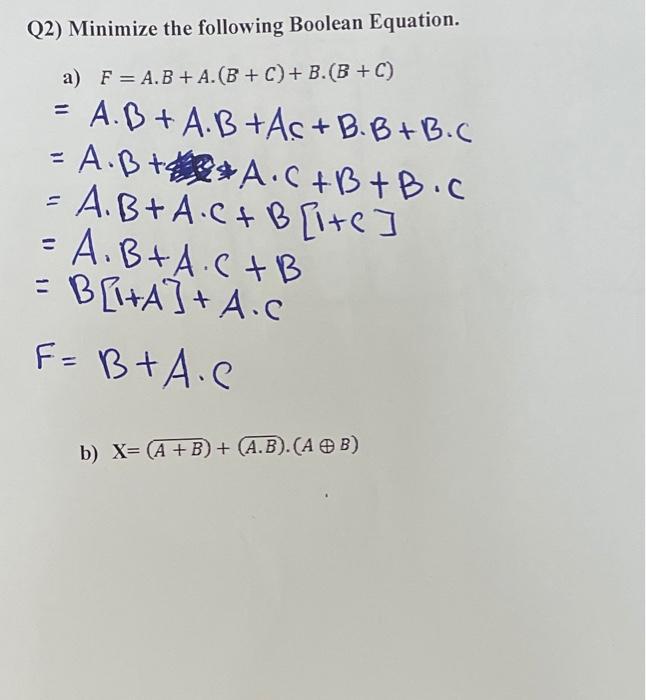 Q2) Minimize the following Boolean Equation.
a) F = A.B + A.(B + C) + B.(B + C)
= A.B + A.B + AC + B.B + B.C
= A.B + + A.C + B + B.C
= A.B + A.C + B [1+C]
= A.B + A.C + B
= B[1+A] + A.C
F = B + A.C
b) X= (\overline{A + B}) + (\overline{A.B}).(A ⊕ B)